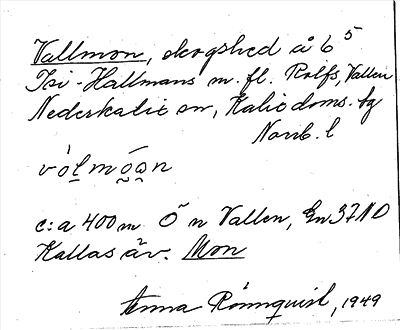 Vallmon, skogshed å 6⁵
Isi-Hallmans m. fl. Rolfs, Vallen
Nederkalix sn, Kalix doms. bg
Norrb. l
vòl̠mó̰a̰n
c:a 400 m Ö n Vallen, Gn 37 ND
Kallas äv. Mon
Anna Rönnquist, 1949